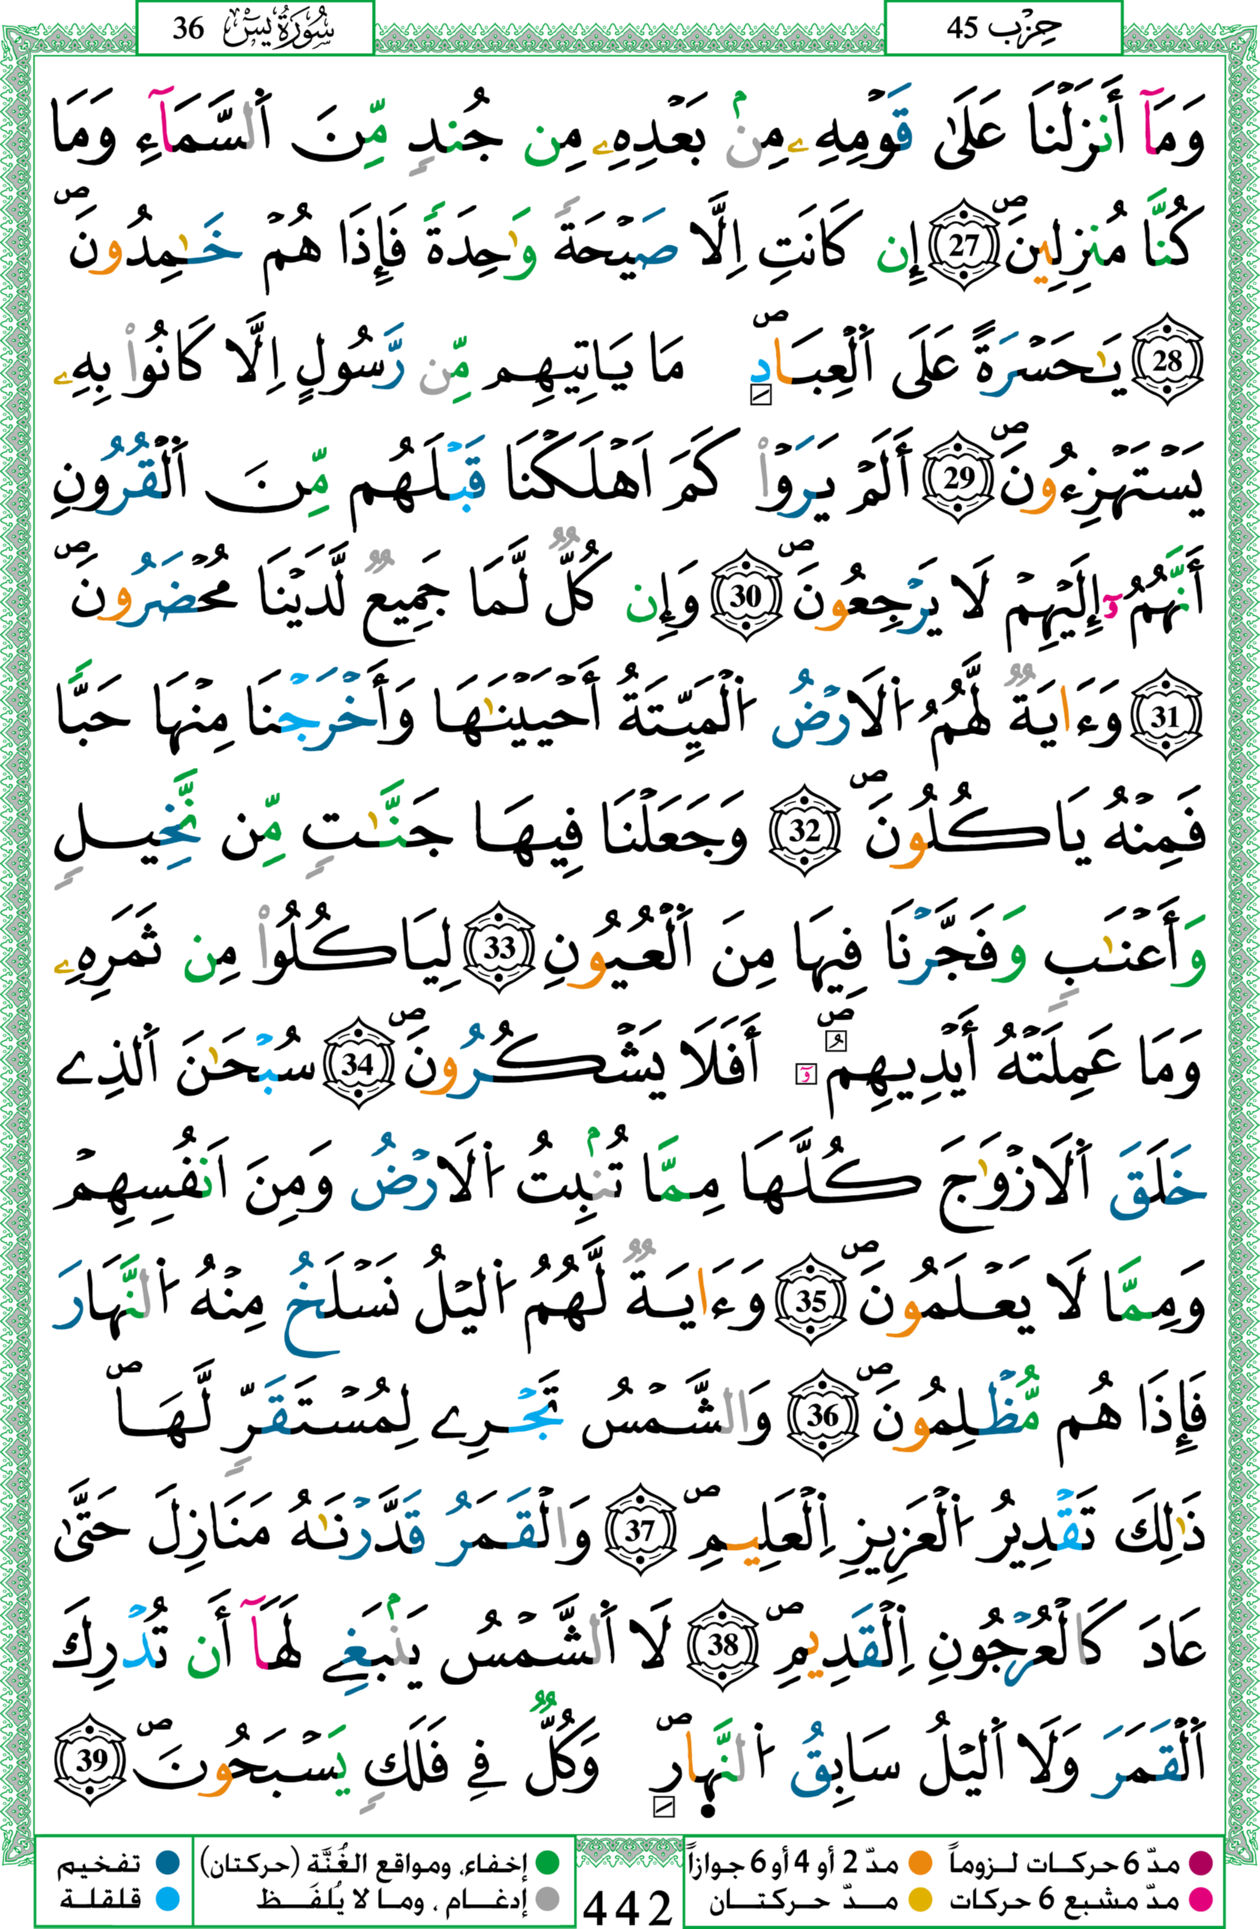 سُورَةُ يسٓ 36
حِزْب 45
وَمَآ أَنزَلْنَا عَلَىٰ قَوْمِهِۦ مِنۢ بَعْدِهِۦ مِن جُندٖ مِّنَ اَ۬لسَّمَآءِ وَمَا
كُنَّا مُنزِلِينَۖ 27 إِن كَانَتِ اِلَّا صَيْحَةٗ وَٰحِدَةٗ فَإِذَا هُمْ خَٰمِدُونَۖ
28 يَٰحَسْرَةً عَلَى اَ۬لْعِبَادِۖ مَا يَاتِيهِم مِّن رَّسُولٍ اِلَّا كَانُواْ بِهِۦ
يَسْتَهْزِءُونَۖ 29 أَلَمْ يَرَوْاْ كَمَ اَهْلَكْنَا قَبْلَهُم مِّنَ اَ۬لْقُرُونِ
أَنَّهُمُۥٓ إِلَيْهِمْ لَا يَرْجِعُونَۖ 30 وَإِن كُلّٞ لَّمَا جَمِيعٞ لَّدَيْنَا مُحْضَرُونَۖ
31 وَءَايَةٞ لَّهُمُ اُ۬لَارْضُ اُ۬لْمَيِّتَةُ أَحْيَيْنَٰهَا وَأَخْرَجْنَا مِنْهَا حَبّٗا
فَمِنْهُ يَاكُلُونَۖ 32 وَجَعَلْنَا فِيهَا جَنَّٰتٖ مِّن نَّخِيلٖ
وَأَعْنَٰبٖ وَفَجَّرْنَا فِيهَا مِنَ اَ۬لْعُيُونِ 33 لِيَاكُلُواْ مِن ثَمَرِهِۦ
وَمَا عَمِلَتْهُ أَيْدِيهِمُۥٓۖ أَفَلَا يَشْكُرُونَۖ 34 سُبْحَٰنَ اَ۬لذِے
خَلَقَ اَ۬لَازْوَٰجَ كُلَّهَا مِمَّا تُنۢبِتُ اُ۬لَارْضُ وَمِنَ اَنفُسِهِمْ
وَمِمَّا لَا يَعْلَمُونَۖ 35 وَءَايَةٞ لَّهُمُ اُ۬ليْلُ نَسْلَخُ مِنْهُ اُ۬لنَّهَارَ
فَإِذَا هُم مُّظْلِمُونَۖ 36 وَالشَّمْسُ تَجْرِے لِمُسْتَقَرّٖ لَّهَاۖ
ذَٰلِكَ تَقْدِيرُ اُ۬لْعَزِيزِ اِ۬لْعَلِيمِۖ 37 وَالْقَمَرُ قَدَّرْنَٰهُ مَنَازِلَ حَتَّىٰ
عَادَ كَالْعُرْجُونِ اِ۬لْقَدِيمِۖ 38 لَا اَ۬لشَّمْسُ يَنۢبَغِے لَهَآ أَن تُدْرِكَ
اَ۬لْقَمَرَ وَلَا اَ۬ليْلُ سَابِقُ اُ۬لنَّهِارِۖ وَكُلّٞ فِے فَلَكٖ يَسْبَحُونَۖ 39
مدّ 6 حركات لزوماً مدّ 2 أو 4 أو 6 جوازاً
مدّ مشبع 6 حركات مدّ حركتان
442
إخفاء، ومواقع الغُنَّة (حركتان) تفخيم
إدغام ، وما لا يُلفَظ قلقلة